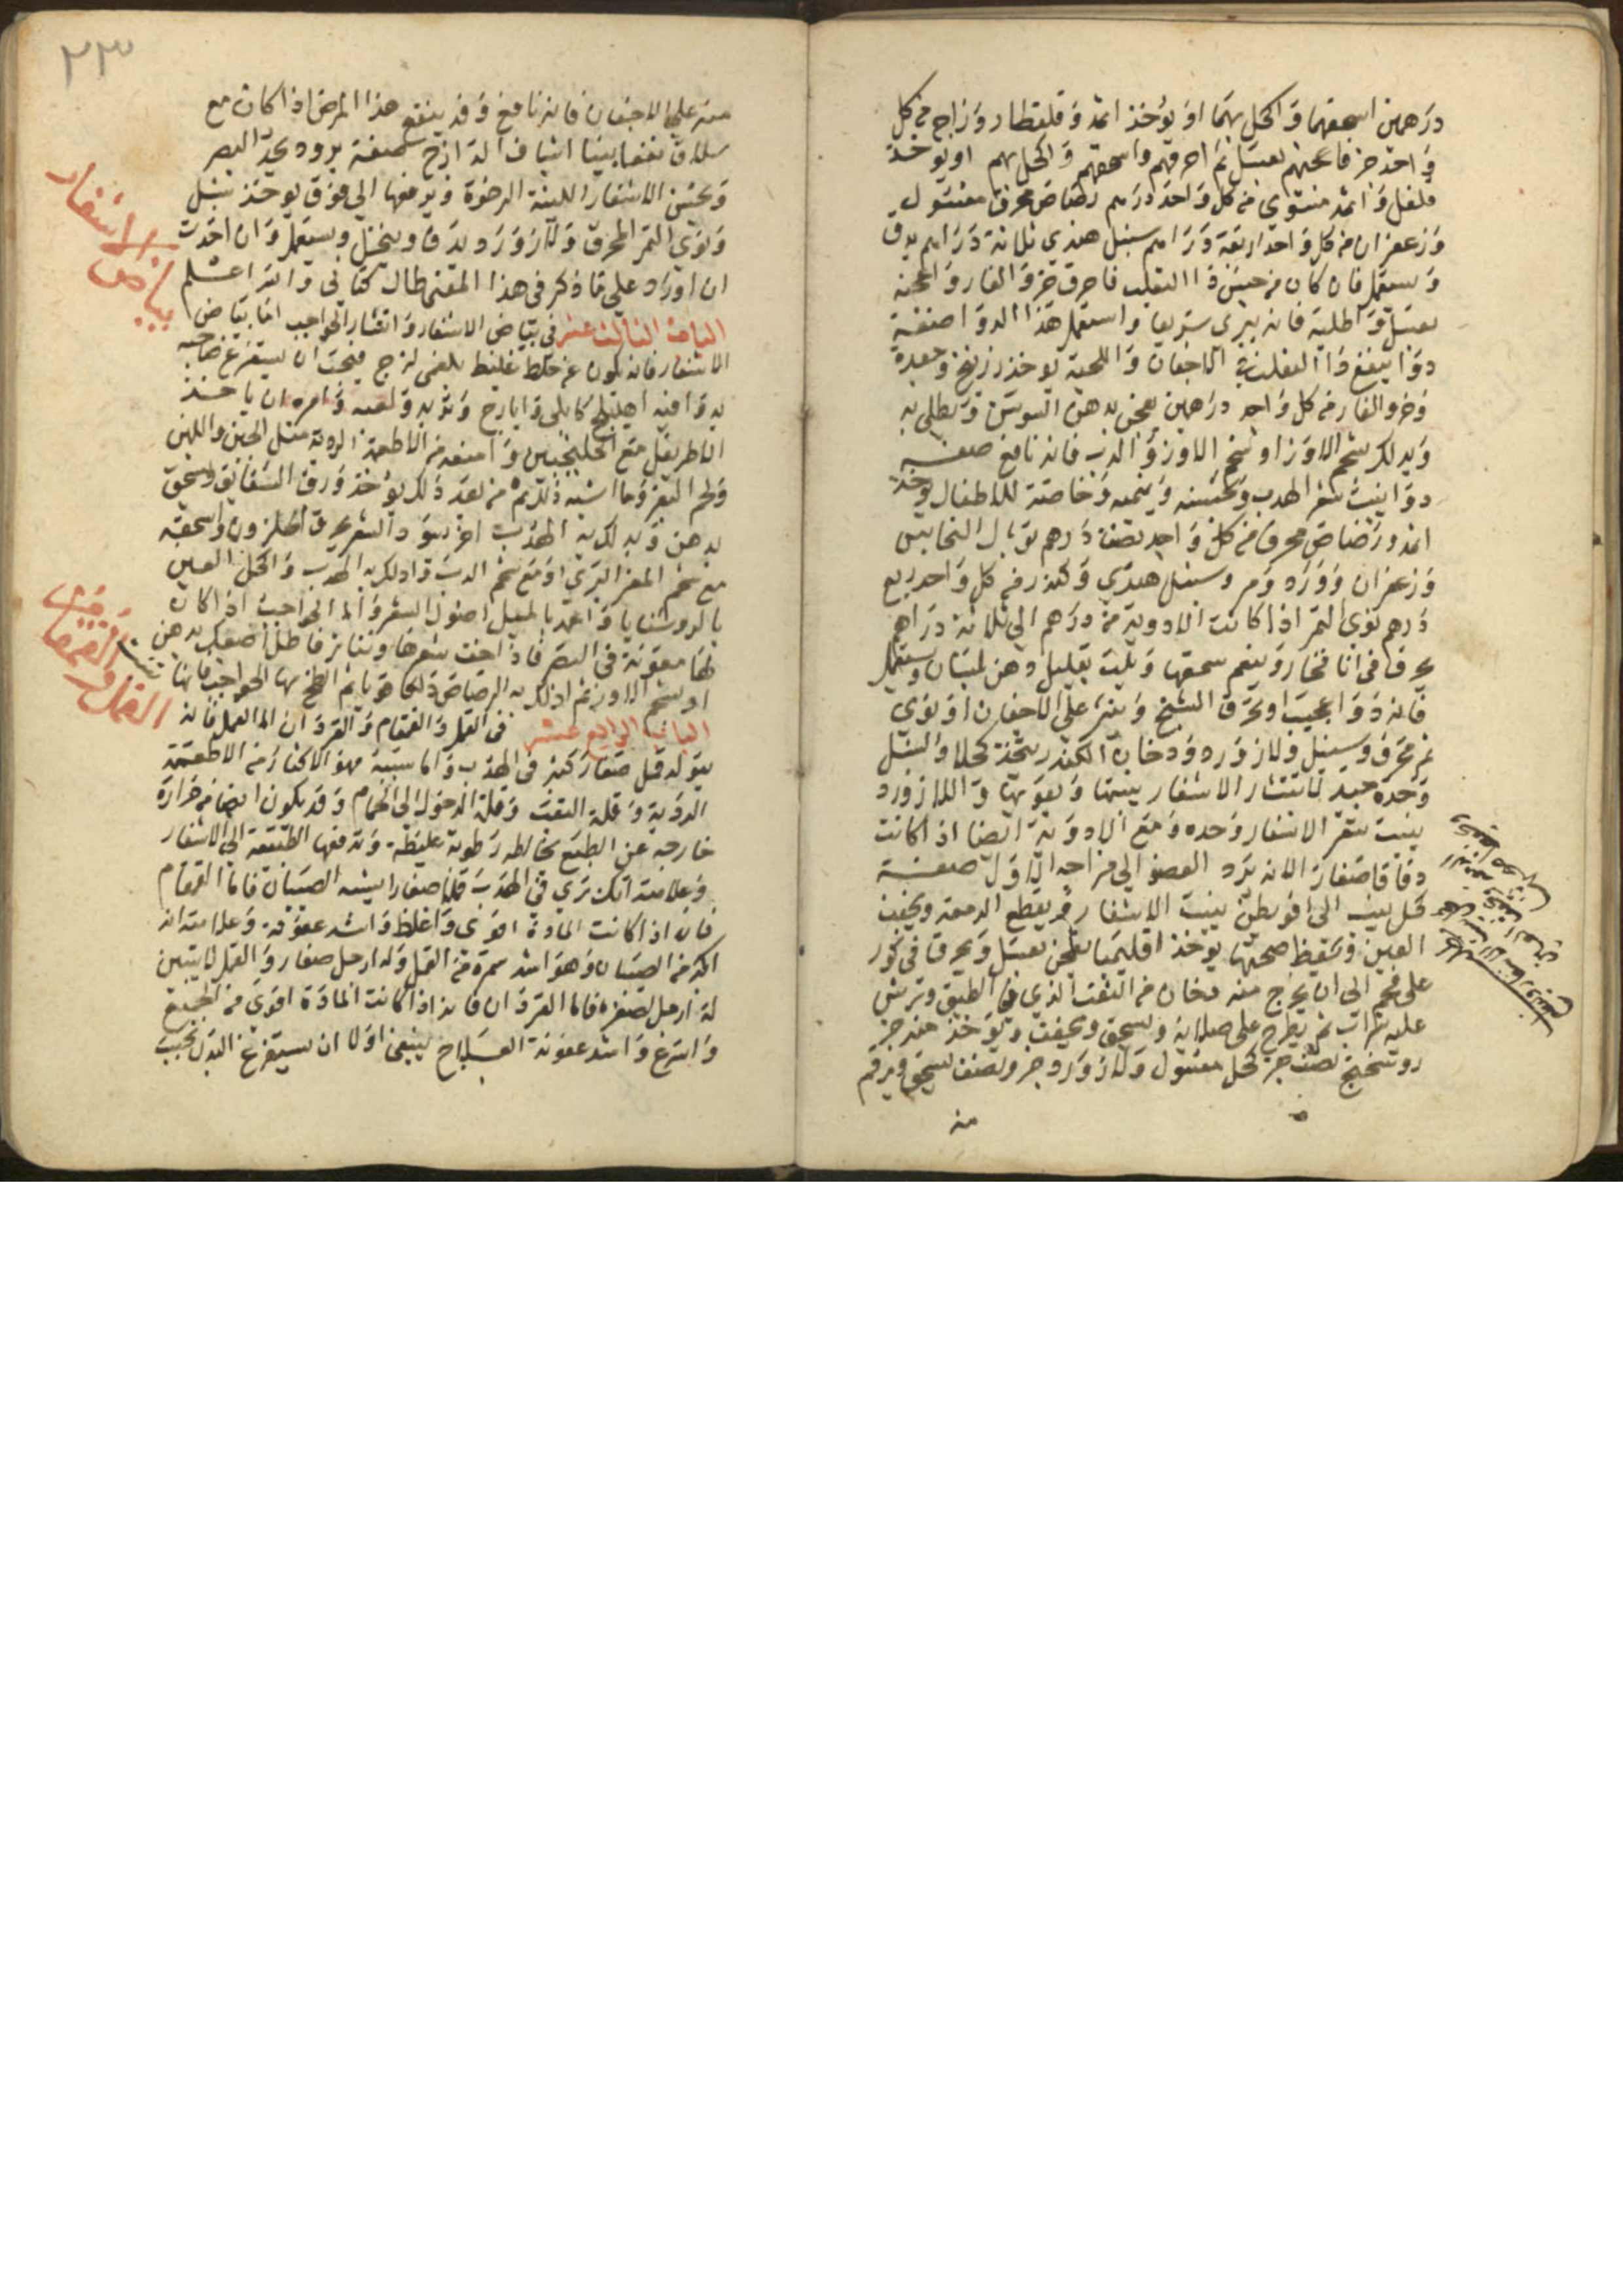 درهمين اسحقهما واكحل بهما او يؤخذ اثمد وقلقطار وزاج من كل
واحد جز فاعجنهم بعسل ثم احرقهم واسحقهم واكحل بهم او يوخذ
فلفل واثمد مشوي من كل واحد درهم رصاص محرق مغسول
وزعفران من كل واحد اربعة دراهم سنبل هندي ثلاثة دراهم يدق
ويستعمل فان كان من جنس داا الثعلب فاحرق خرو الفار واعجنه
بعسل واطليه فانه يبرى سريعا واستعمل هذا الدوا صفة
دوا ينفع داا الثعلب في الاجفان واللحية يوخذ زرنيخ
وخرو الفار من كل واحد درهمين يعجن بدهن السوسن ويطلى به
ويدلك بشحم الاوز او شحم الدب فانه نافع صفة
دوا ينبت شعر الهدب ويحسنه وينميه وخاصة للاطفال يوخذ
اثمد ورصاص محرق من كل واحد نصف درهم توبال النحاس
وزعفران وورد ومر وسنبل هندي وكندر من كل واحد ربع
درهم نوى التمر اذا كانت الادوية من درهم الى ثلاثة دراهم
يحرق في انا فخار وينعم سحقها ويلت بقليل دهن بلسان ويستعمل
فانه دوا عجيب او يحرق الشيح وينثر على الاجفان او نوى
تمر محرق وسنبل ولازورد ودخان الكندر يتخذ كحلا والسنبل
وحده جيد لانتثار الاشفار ينبتها ويقويها واللازورد
ينبت شعر الاشفار وحده ومع الادوية ايضا اذا كانت
دقاقا صغارا لانه يرد العضو الى مزاجه الاول صفة
كحل ينبت الاشفار ويقطع الدمعة ويجفف
العين ويحفظ صحتها يوخذ اقليميا يعجن بعسل ويحرق في كور
على فحم الى ان يخرج منه دخان من الثقب الذي في الطبق ويرش
عليه شراب ثم يطرح على صلاية ويسحق ويجفف ويؤخذ منه جز
روسختج نصف جز كحل مغسول ولازورد جز ونصف يسحق ويرفع
منه
٢٣
منه على الاجفان فانه نافع وقد ينفع هذا المرض اذا كان مع
سلاق نفعا بينا اشياف الدارج صفة برود يحد البصر
ويحسن الاشفار اللينة الرخوة ويرفعها الى فوق يوخذ سنبل
ونوى التمر المحرق ولازورد يدق وينخل ويستعمل وان اخذت
ان اورد على ما ذكر في هذا المعنى طال كتابي والله اعلم
الباب الثالث عشر في بياض الاشفار وانتشار الحواجب اما بياض
الاشفار فانه يكون عن خلط غليظ بلغمي لزج فيجب ان يستفرغ صاحبه
بدوا فيه اهليلج كابلي وايارج وتربد وامره ان ياخذ
الاطريفل مع الجلنجبين وامنعه من الاطعمة الردية مثل الجبن واللبن
ولحم البقر وما اشبه ذلك ثم من بعد ذلك يؤخذ ورق الشقايق ويسحق
بدهن ويدلك به الهدب اخر يسود الشعر يحرق الحلزون واسحقه
مع شحم المعز البري او مع شحم الدب وادلك به الهدب واكحل العين
بالروشنايا واعمد بالميل اصول الشعر واما الحواجب اذ كان
لها معونة في البصر فاذا خف شعرها وتناثر فاطل اصولها بدهن
او شحم الاوز ثم ادلك به الرصاص دلكا قويا ثم الطخ بها الحواجب فانها تنبت
الباب الرابع عشر في القمل والقمقام والقردان اما القمل فانه
يتولد قمل صغار كثير في الهدب واما سببه فهو الاكثار من الاطعمة
الردية وقلة التعب وقلة الدخول الى الحمام وقد يكون ايضا من حرارة
خارجه عن الطبع يخالطه رطوبة غليظة وتدفعها الطبيعة الى الاشفار
وعلامته انك ترى في الهدب قملا صغارا يشبه الصيبان فاما القمقام
فانه اذا كانت المادة اقوى واغلظ واشد عفونة وعلامته انه
اكبر من الصيبان وهو اشد سمرة من القمل وله ارجل صغار والقمل لا يتبين
له ارجل لصغره فاما القردان فانه اذا كانت المادة اقوى من الجميع
واسرع واشد عفونة العلاج ينبغي اولا ان يستفرغ البدن بحب
بياض اشفار
القمل والقمقام